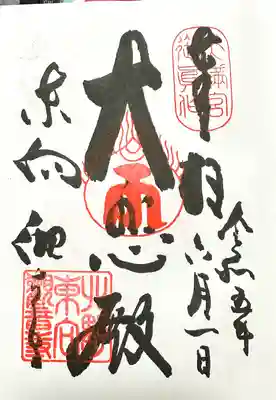 令和五年
奉拝 六月一日
大悲殿
東向観音寺
北野
東向
観音寺